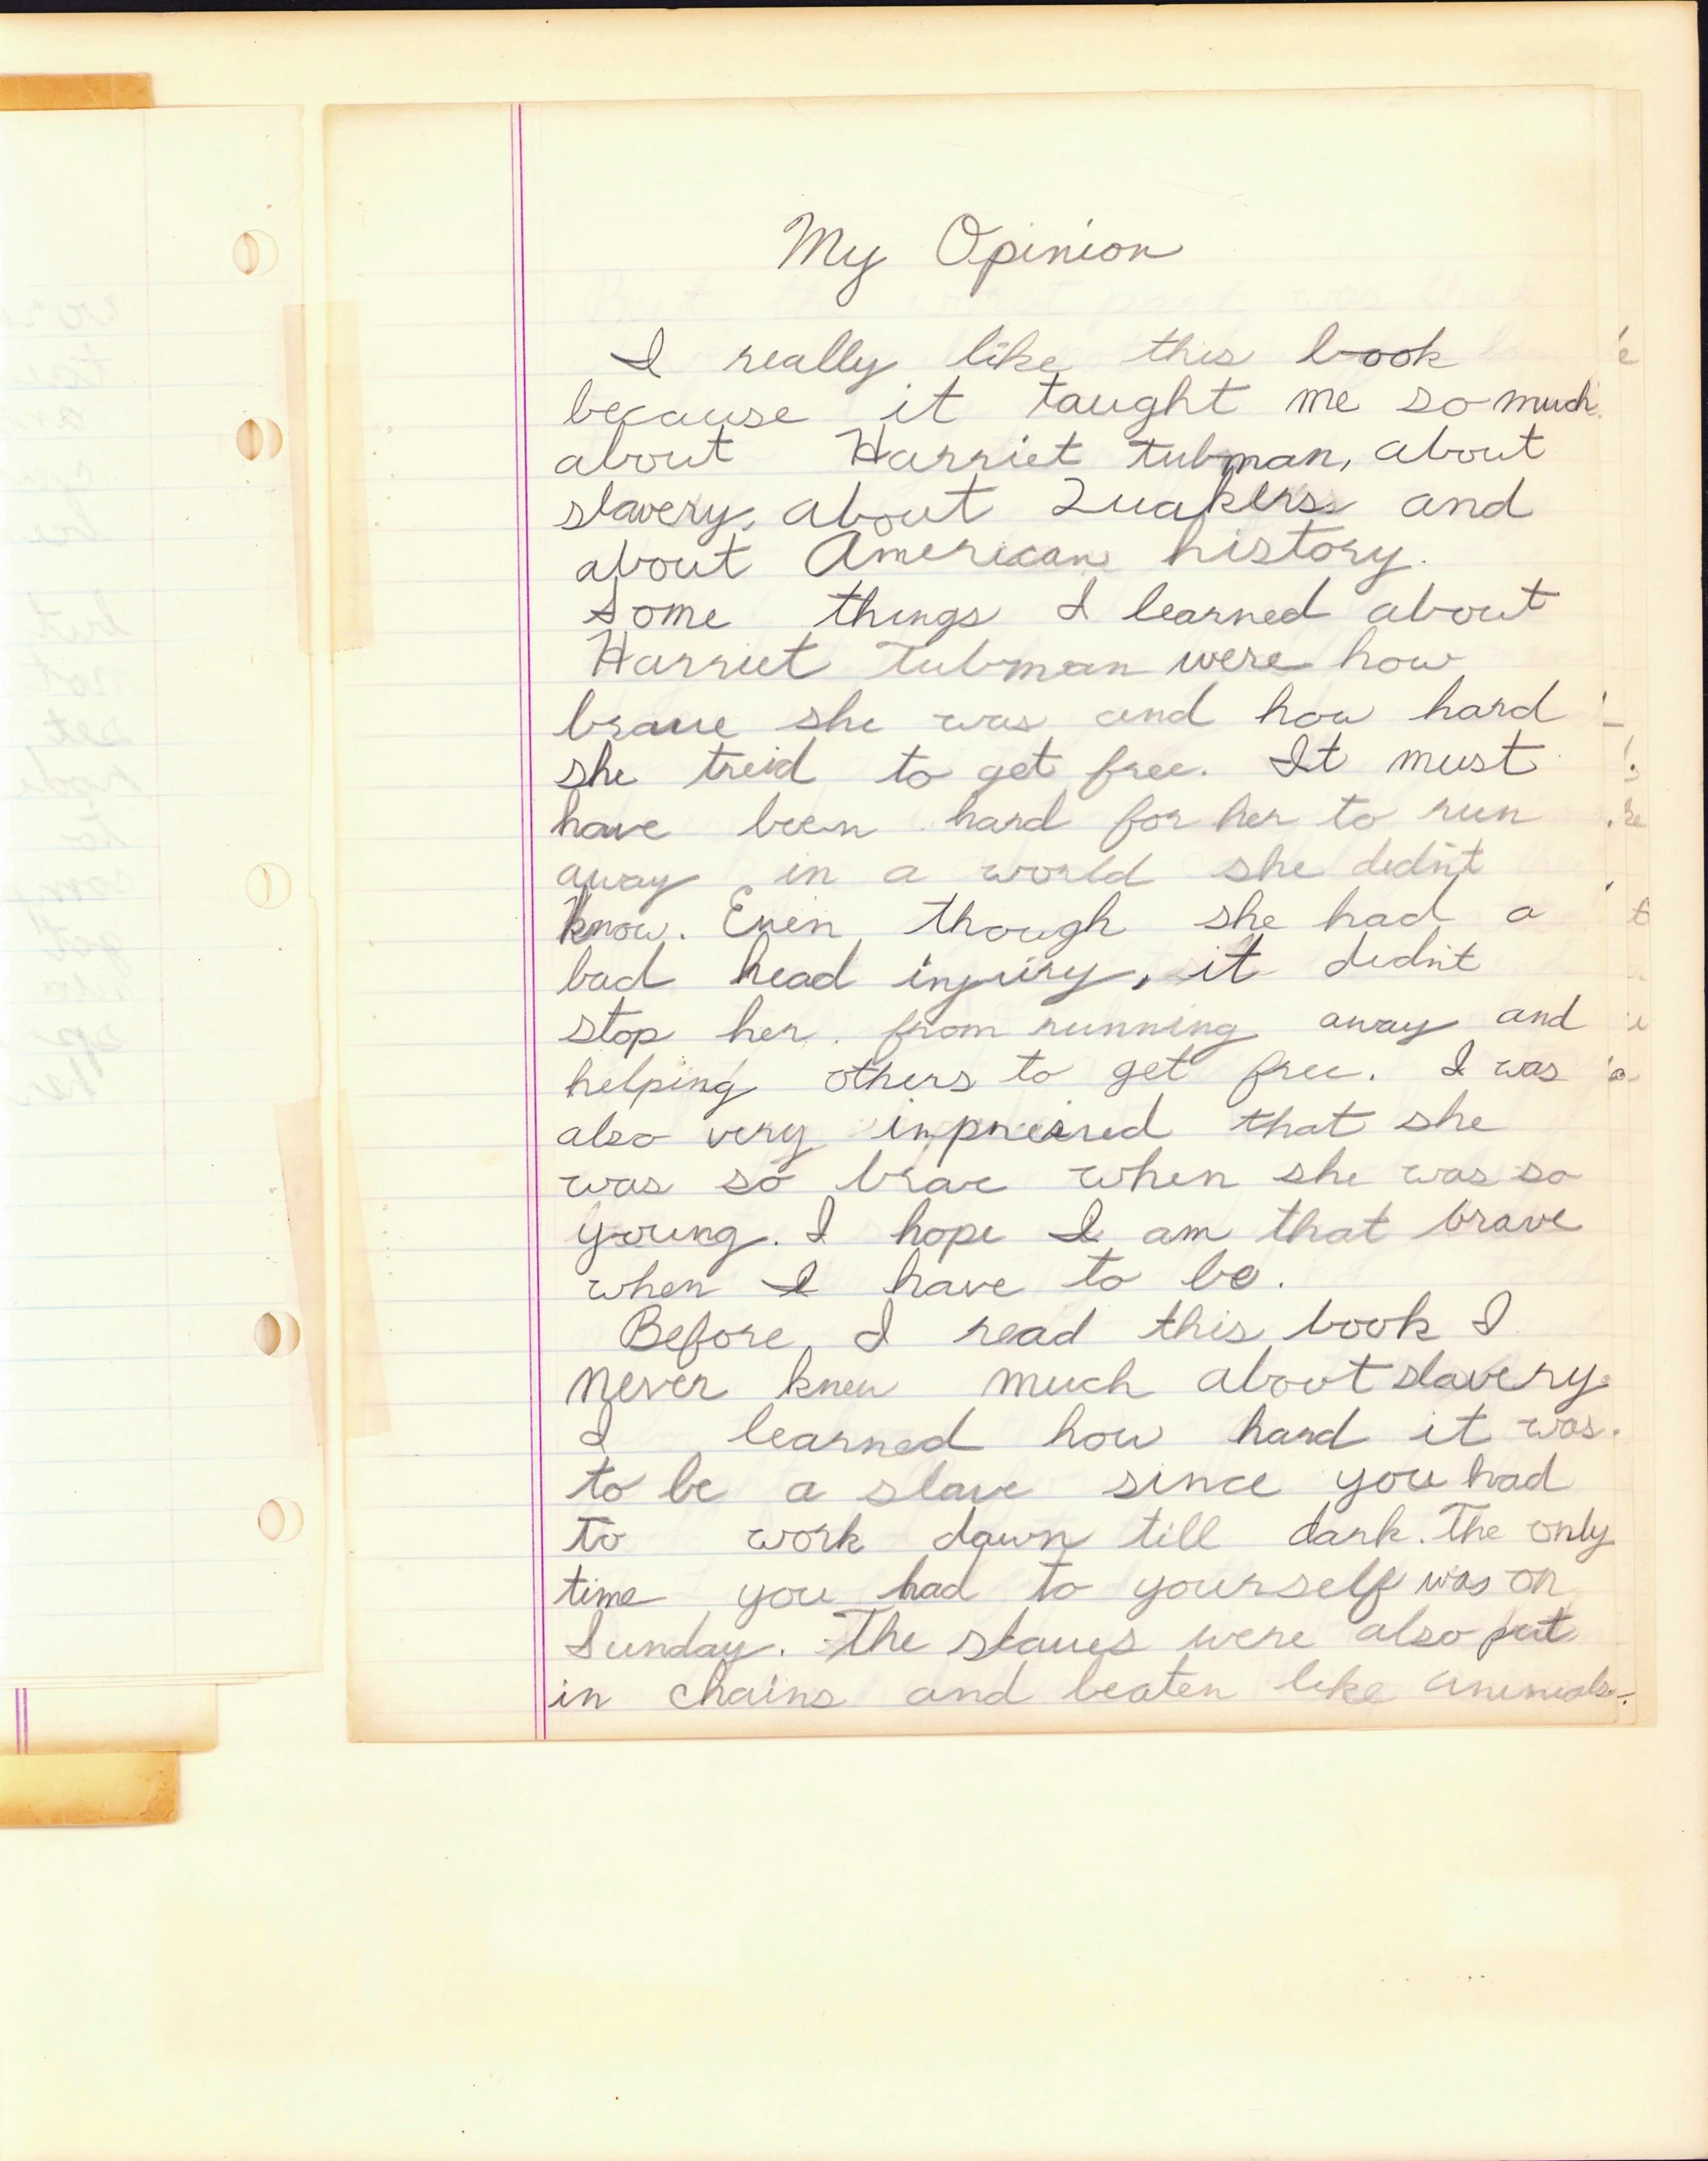 My Opinion
I really like this book
because it taught me so much
about Harriet Tubman, about
slavery, about Quakers and
about American history.
Some things I learned about
Harriet Tubman were how
brave she was and how hard
she treid to get free. It must
have been hard for her to run
away in a world she didn't
know. Even though she had a
bad head injury, it didn't
stop her from running away and
helping others to get free. I was
also very impressed that she
was so brave when she was so
young. I hope I am that brave
when I have to be.
Before I read this book I
never knew much about slavery.
I learned how hard it was.
to be a slave since you had
to work dawn till dark. The only
time you had to yourself was on
Sunday. The slaves were also put
in chains and beaten like animals.